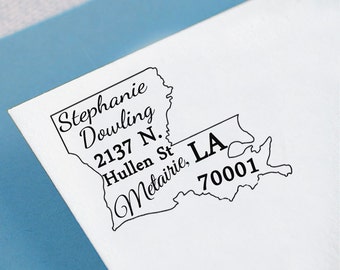 Stephanie
Dowling
2137 N.
Hullen St
Metairie, LA
70001